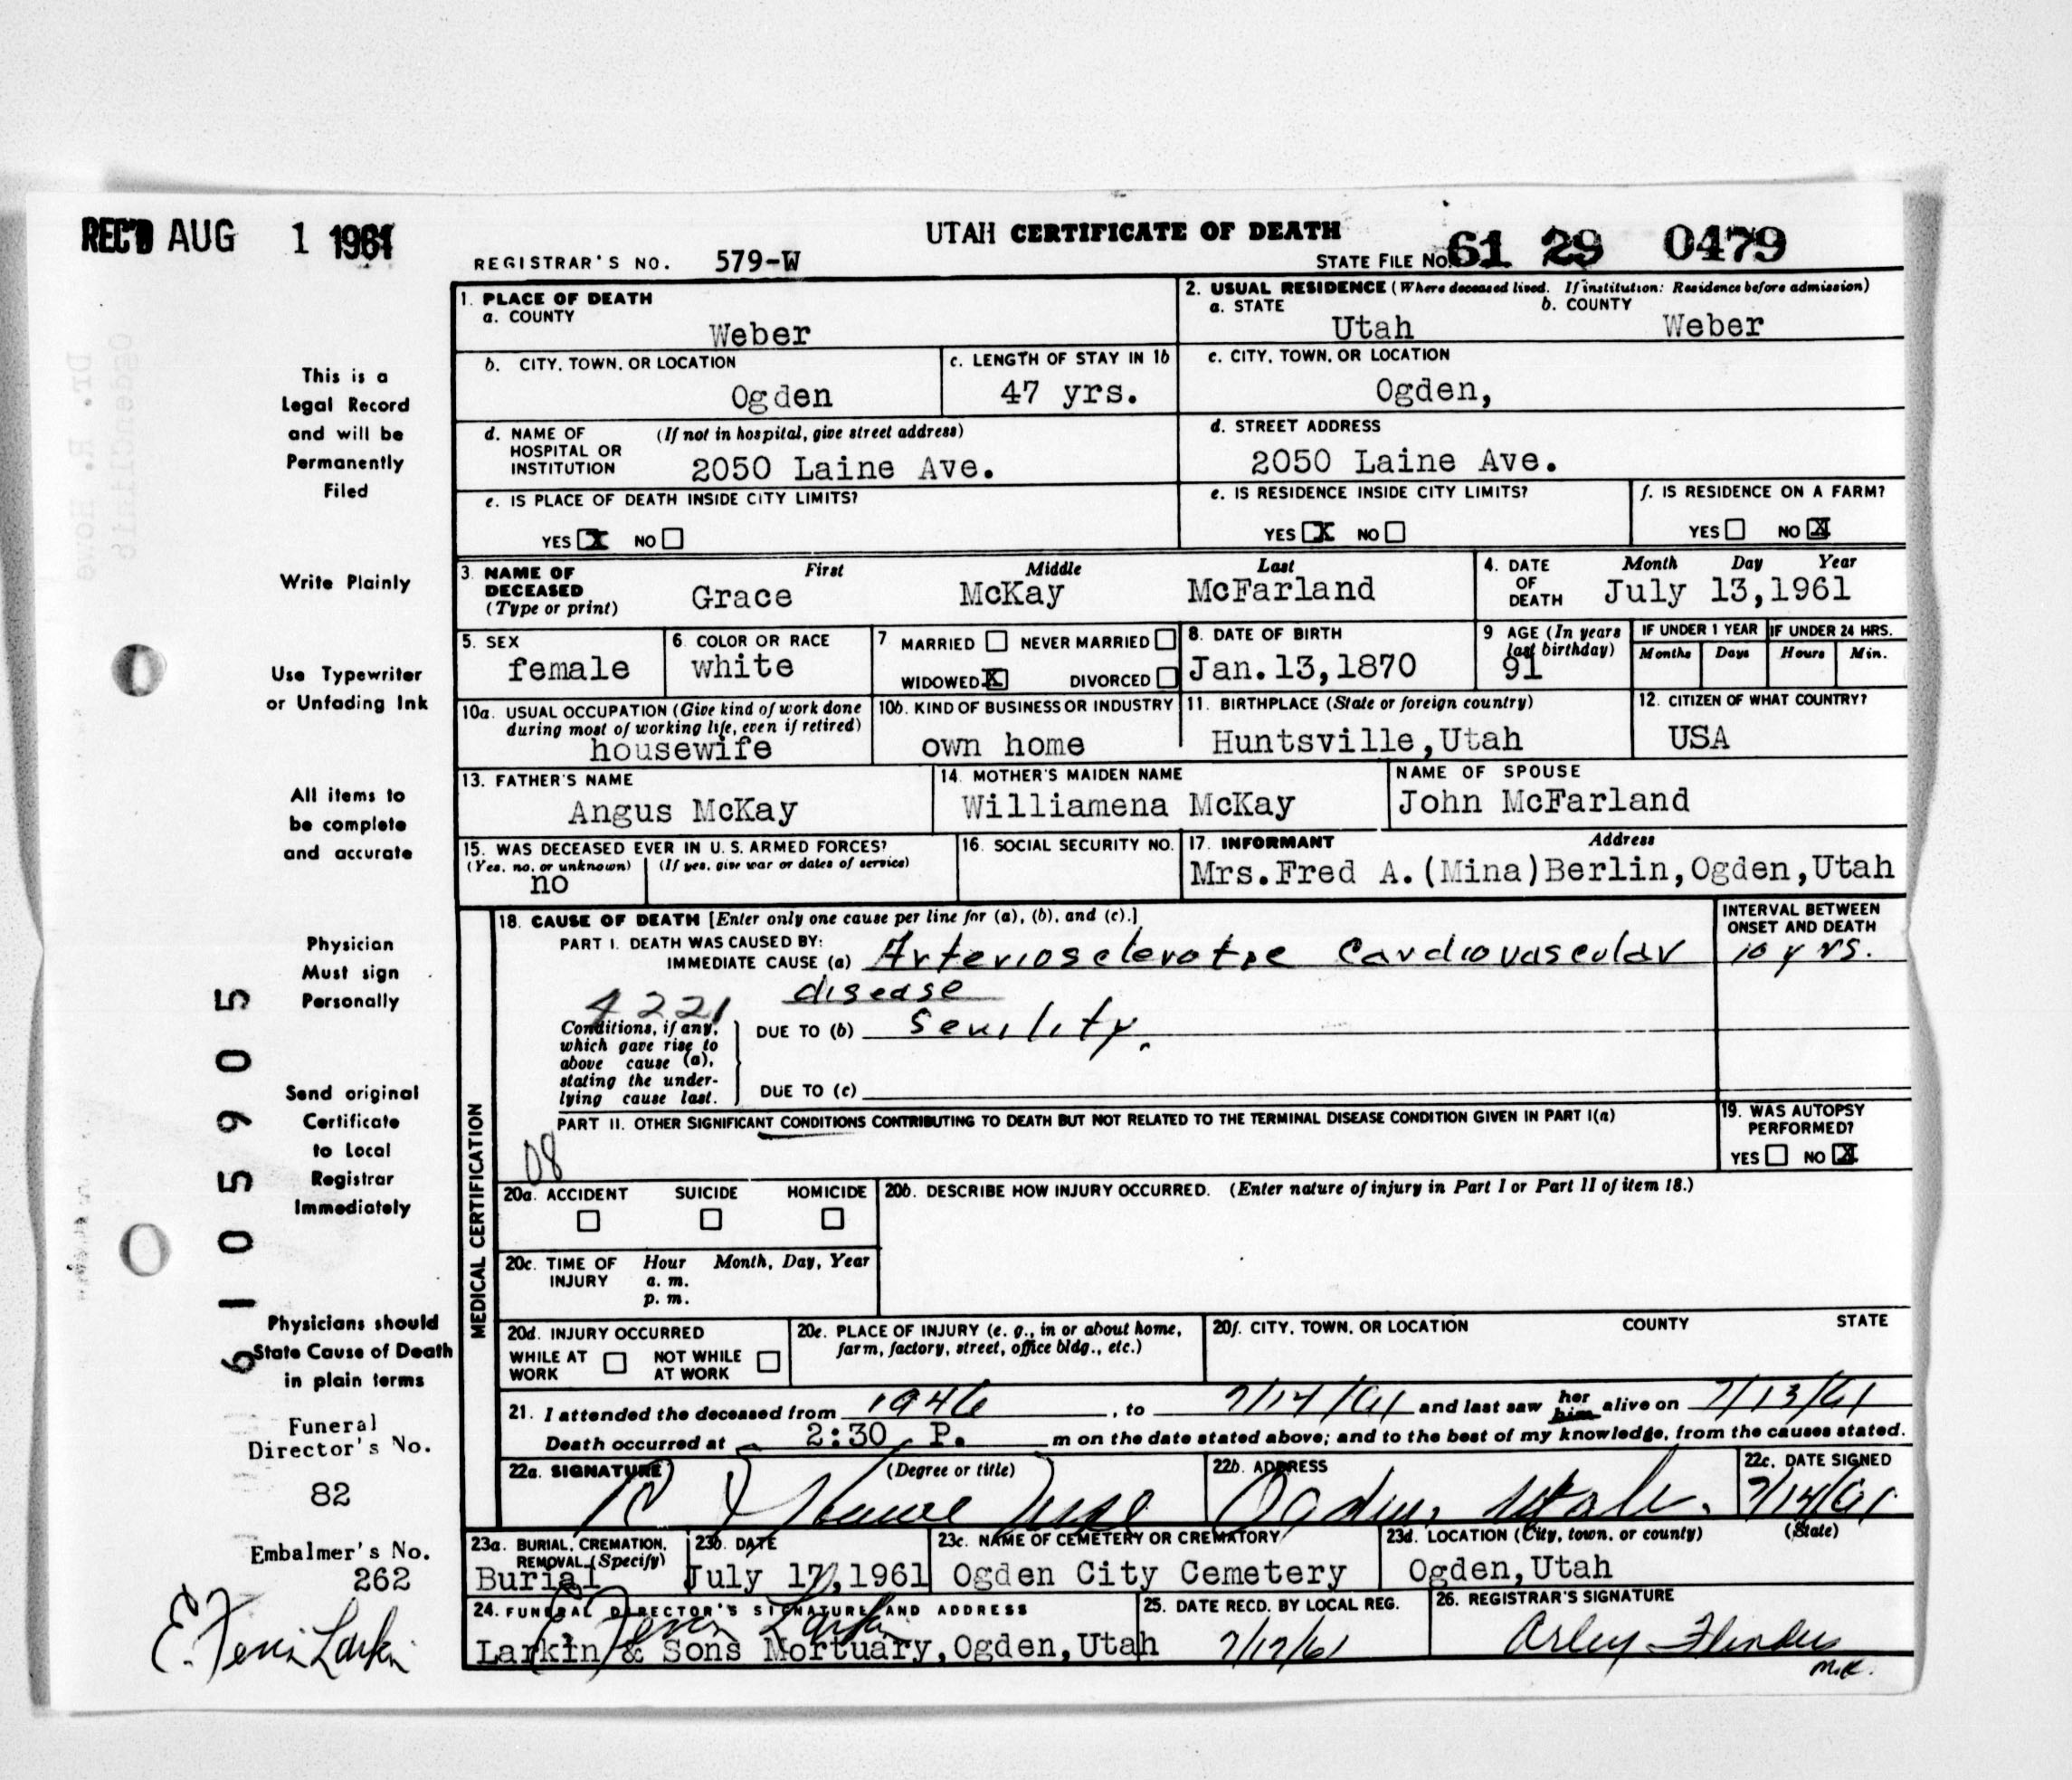 REC'D AUG 1 1961
UTAH CERTIFICATE OF DEATH
REGISTRAR'S NO. 579-W
STATE FILE NO. 61 29 0479
1. PLACE OF DEATH
a. COUNTY
Weber
2. USUAL RESIDENCE (Where deceased lived. If institution: Residence before admission)
a. STATE b. COUNTY
Utah Weber
b. CITY, TOWN, OR LOCATION
Ogden
c. LENGTH OF STAY IN 1b
47 yrs.
c. CITY, TOWN, OR LOCATION
Ogden,
d. NAME OF (If not in hospital, give street address)
HOSPITAL OR
INSTITUTION 2050 Laine Ave.
d. STREET ADDRESS
2050 Laine Ave.
e. IS PLACE OF DEATH INSIDE CITY LIMITS?
YES X NO
e. IS RESIDENCE INSIDE CITY LIMITS?
YES X NO
f. IS RESIDENCE ON A FARM?
YES NO X
3. NAME OF
DECEASED
(Type or print)
First Middle Last
Grace McKay McFarland
4. DATE
OF
DEATH
Month Day Year
July 13,1961
5. SEX
female
6. COLOR OR RACE
white
7 MARRIED NEVER MARRIED
WIDOWED X DIVORCED
8. DATE OF BIRTH
Jan.13,1870
9 AGE (In years
last birthday)
91
IF UNDER 1 YEAR
Months Days
IF UNDER 24 HRS.
Hours Min.
10a. USUAL OCCUPATION (Give kind of work done
during most of working life, even if retired)
housewife
10b. KIND OF BUSINESS OR INDUSTRY
own home
11. BIRTHPLACE (State or foreign country)
Huntsville,Utah
12. CITIZEN OF WHAT COUNTRY?
USA
13. FATHER'S NAME
Angus McKay
14. MOTHER'S MAIDEN NAME
Williamena McKay
NAME OF SPOUSE
John McFarland
15. WAS DECEASED EVER IN U.S. ARMED FORCES?
(Yes, no, or unknown) (If yes, give war or dates of service)
no
16. SOCIAL SECURITY NO.
17. INFORMANT Address
Mrs.Fred A.(Mina)Berlin,Ogden,Utah
MEDICAL CERTIFICATION
18. CAUSE OF DEATH [Enter only one cause per line for (a), (b), and (c).]
PART I. DEATH WAS CAUSED BY:
IMMEDIATE CAUSE (a) Arteriosclerotic Cardiovascular
disease
INTERVAL BETWEEN
ONSET AND DEATH
10 yrs.
4221
Conditions, if any,
which gave rise to
above cause (a),
stating the under-
lying cause last.
DUE TO (b) Senility.
DUE TO (c)
PART II. OTHER SIGNIFICANT CONDITIONS CONTRIBUTING TO DEATH BUT NOT RELATED TO THE TERMINAL DISEASE CONDITION GIVEN IN PART I(a)
08
19. WAS AUTOPSY
PERFORMED?
YES NO X
20a. ACCIDENT SUICIDE HOMICIDE
20b. DESCRIBE HOW INJURY OCCURRED. (Enter nature of injury in Part I or Part II of item 18.)
20c. TIME OF Hour Month, Day, Year
INJURY a. m.
p. m.
20d. INJURY OCCURRED
WHILE AT NOT WHILE
WORK AT WORK
20e. PLACE OF INJURY (e. g., in or about home,
farm, factory, street, office bldg., etc.)
20f. CITY, TOWN, OR LOCATION COUNTY STATE
21. I attended the deceased from 1946, to 7/14/61 and last saw her him alive on 7/13/61
Death occurred at 2:30 P. m on the date stated above; and to the best of my knowledge, from the causes stated.
22a. SIGNATURE (Degree or title)
22b. ADDRESS
Ogden, Utah.
22c. DATE SIGNED
7/14/61
23a. BURIAL, CREMATION,
REMOVAL (Specify)
Burial
23b. DATE
July 17,1961
23c. NAME OF CEMETERY OR CREMATORY
Ogden City Cemetery
23d. LOCATION (City, town, or county) (State)
Ogden,Utah
24. FUNERAL DIRECTOR'S SIGNATURE AND ADDRESS
Larkin & Sons Mortuary,Ogden,Utah
25. DATE RECD. BY LOCAL REG.
7/17/61
26. REGISTRAR'S SIGNATURE
This is a
Legal Record
and will be
Permanently
Filed
Write Plainly
Use Typewriter
or Unfading Ink
All items to
be complete
and accurate
Physician
Must sign
Personally
Send original
Certificate
to Local
Registrar
Immediately
Physicians should
State Cause of Death
in plain terms
61 05905
Funeral
Director's No.
82
Embalmer's No.
262
Larkin